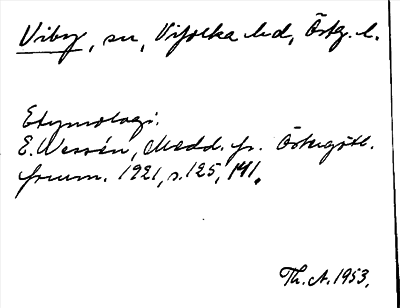 Viby, sn, Vifolka hd, Östg. l.
Etymologi.
E. Wessén, Medd. fr. Östergötl.
fornm. 1921, s. 125, 141.
Th. A. 1953.